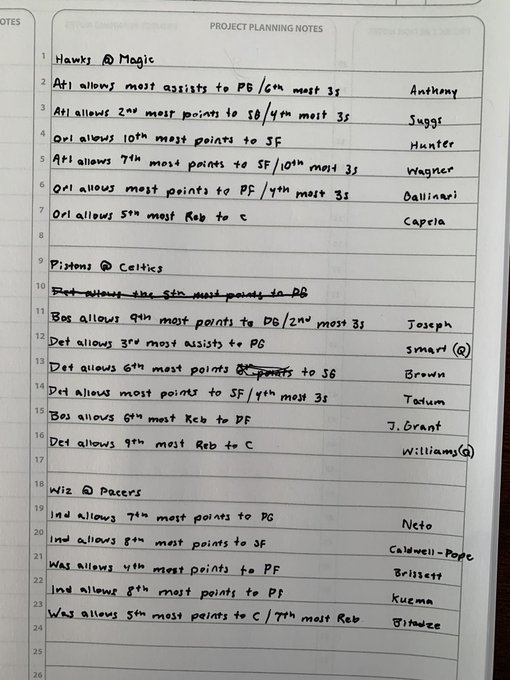 OTES
PROJECT PLANNING NOTES
1 Hawks @ Magic
2 Atl allows most assists to PG/6th most 3s Anthony
3 Atl allows 2nd most points to SG/4th most 3s Suggs
4 Orl allows 10th most points to SF Hunter
5 Atl allows 7th most points to SF/10th most 3s Wagner
6 Orl allows most points to PF/4th most 3s Gallinari
7 Orl allows 5th most Reb to C Capela
8
9 Pistons @ Celtics
10 Det allows the 5th most points to PG
11 Bos allows 9th most points to PG/2nd most 3s Joseph
12 Det allows 3rd most assists to PG Smart (Q)
13 Det allows 6th most points to SG Brown
14 Det allows most points to SF/4th most 3s Tatum
15 Bos allows 6th most Reb to PF J. Grant
16 Det allows 9th most Reb to C Williams(Q)
17
18 Wiz @ Pacers
19 Ind allows 7th most points to PG Neto
20 Ind allows 8th most points to SF Caldwell-Pope
21 Was allows 4th most points to PF Brissett
22 Ind allows 8th most points to PF Kuzma
23 Was allows 5th most points to C/7th most Reb Bitadze
24
25
26